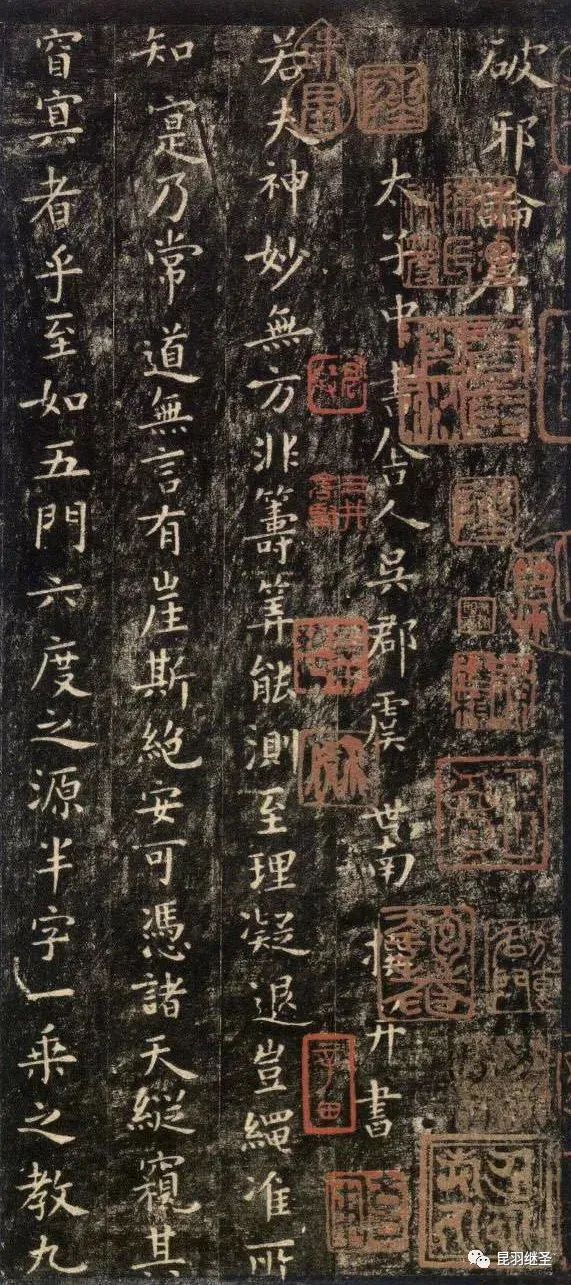 破邪論序
太子中書舍人吳郡虞世南撰并書
若夫神妙無方非籌筭能測至理凝退豈繩准所
知寔乃常道無言有崖斯絕安可憑諸天縱窺其
窅冥者乎至如五門六度之源半字一乘之教九
昆羽继圣